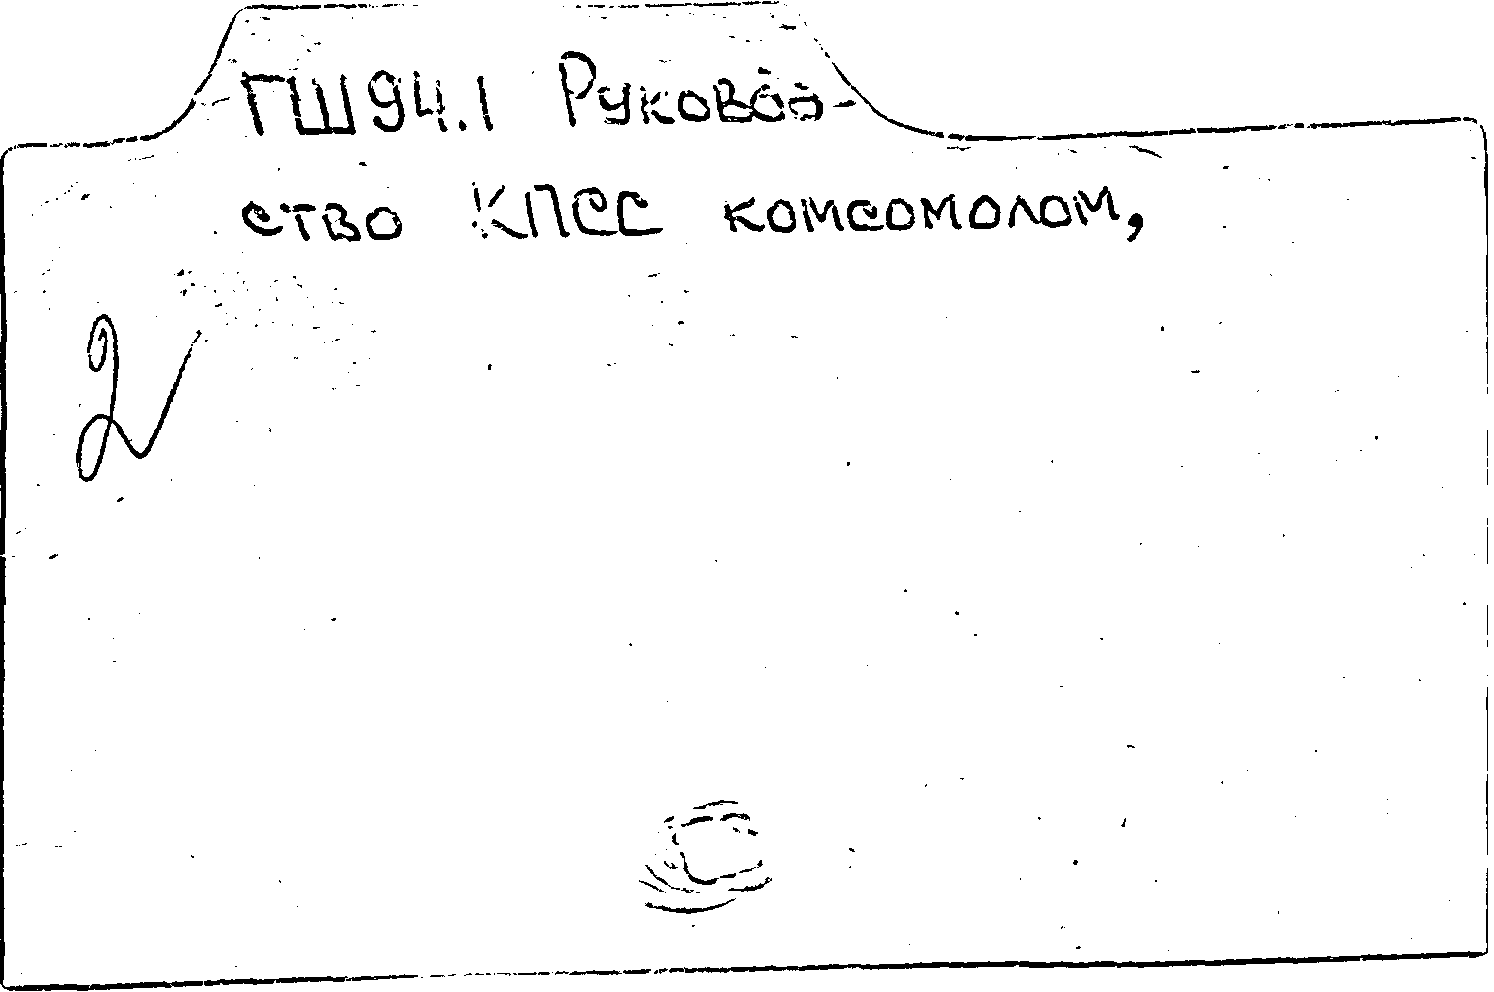 ГШ94.1 Руковод-
ство КПСС комсомолом,
2